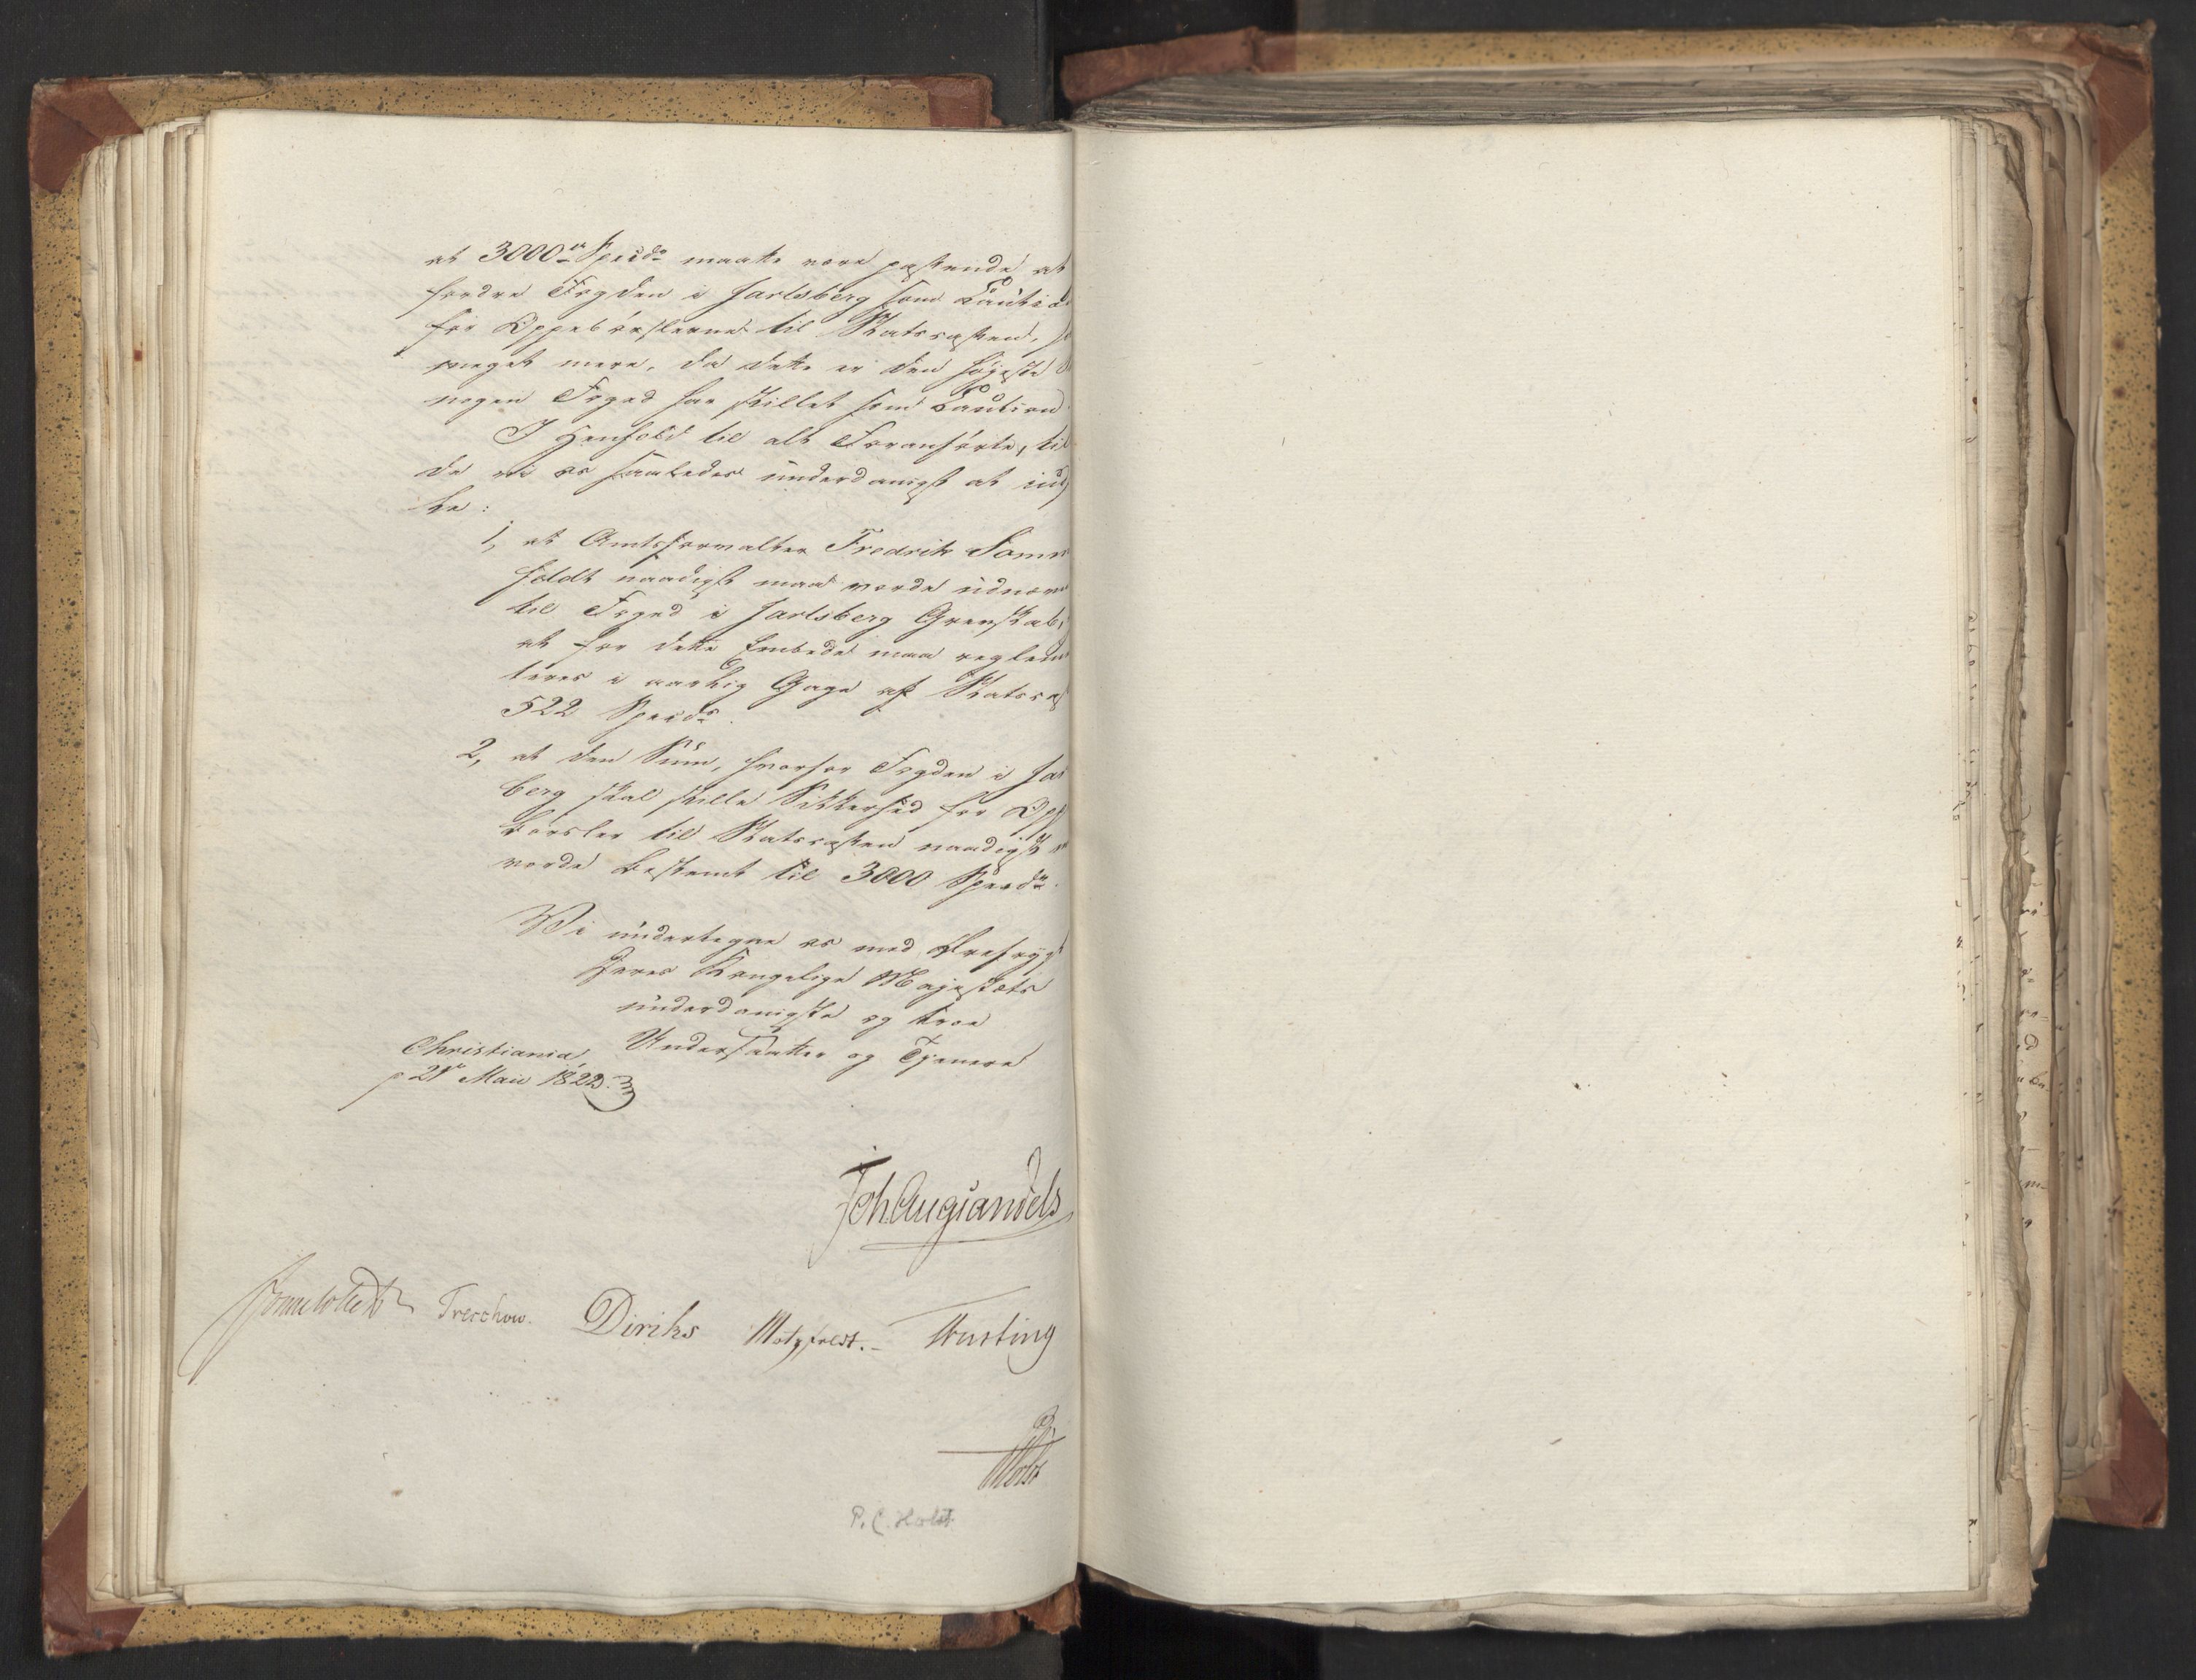 at 3000 Specd maatte være passende at
fordre Fogden i Jarlsberg som Cautio
for Oppebørslerne til Statscassen, 
meget mere, da dette er den højeste
nogen Foged har stillet som Caution
I Henhold til alt Foranførte, til
de vi os saaledes underdanigst at ind
lle:
1, at Amtsforvalter Fredrik Somm
feldt naadigst maa vorde udnævn
til Foged i Jarlsberg Grevskab,
at for dette Embede maa reglem
teres i aarlig Gage af Statscas
522 Specd.
2, at den Sum, hvorfor Fogden i Jarl
berg skal stille Sikkerhed for Opp
børsler til Statscassen naadigst
vorde bestemt til 3000 Specd.
Vi undertegne os med Ærefrygt
Deres Kongelige Majestæts
underdanigste og troe
Undersaatter og Tjenere
Christiania,
p 21 Maii 1822.
Joh Aug Sandels
Sommerfeldt Treschow. Diriks Motzfeldt. Krusting
Holst
P. C. Holst